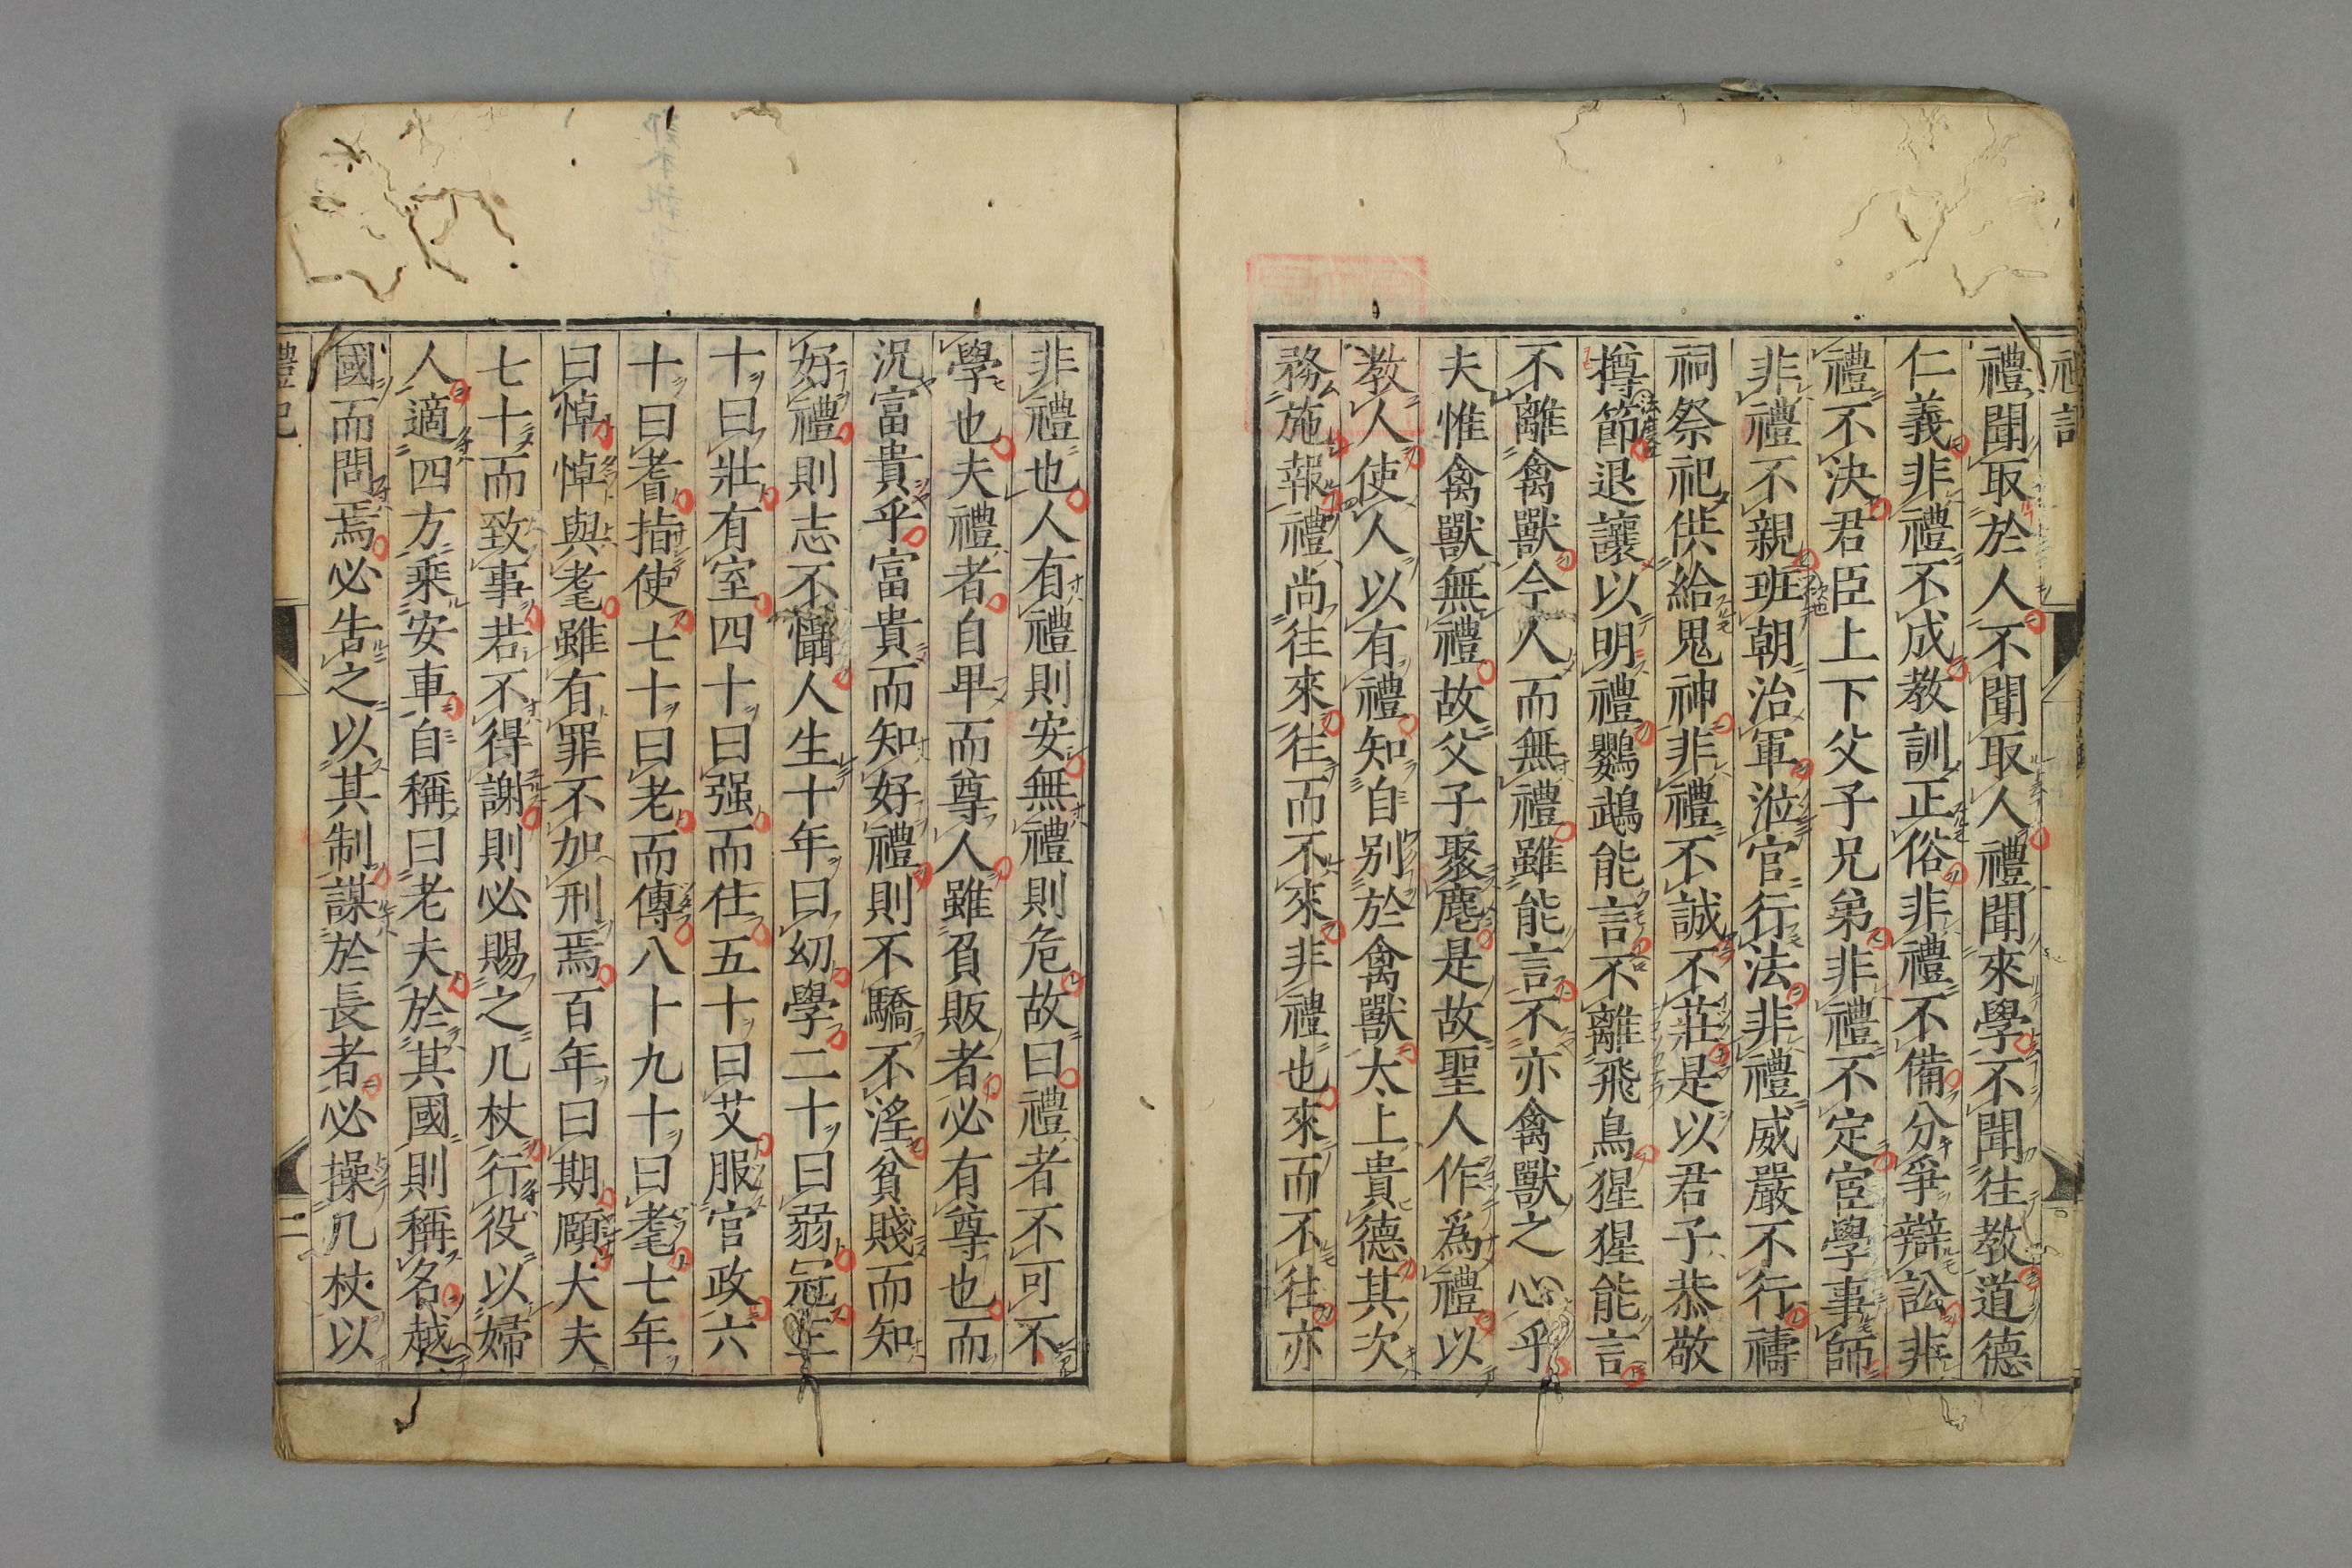 禮聞取於人不聞取人禮聞來學不聞往教道德
仁義非禮不成教訓正俗非禮不備分爭辯訟非
禮不決君臣上下父子兄弟非禮不定宦學事師
非禮不親班朝治軍涖官行法非禮威嚴不行禱
祠祭祀供給鬼神非禮不誠不莊是以君子恭敬
撙節退讓以明禮鸚鵡能言不離飛鳥猩猩能言
不離禽獸今人而無禮雖能言不亦禽獸之心乎
夫惟禽獸無禮故父子聚麀是故聖人作爲禮以
教人使人以有禮知自别於禽獸太上貴德其次
務施報禮尚往來往而不來非禮也來而不往亦
非禮也人有禮則安無禮則危故曰禮者不可不
學也夫禮者自卑而尊人雖負販者必有尊也而
況富貴乎富貴而知好禮則不驕不淫貧賤而知
好禮則志不懾人生十年曰幼學二十曰弱冠三
十曰壯有室四十曰强而仕五十曰艾服官政六
十曰耆指使七十曰老而傳八十九十曰耄七年
曰悼悼與耄雖有罪不加刑焉百年曰期頤大夫
七十而致事若不得謝則必賜之几杖行役以婦
人適四方乘安車自稱曰老夫於其國則稱名越
國而問焉必告之以其制謀於長者必操几杖以
禮記
二